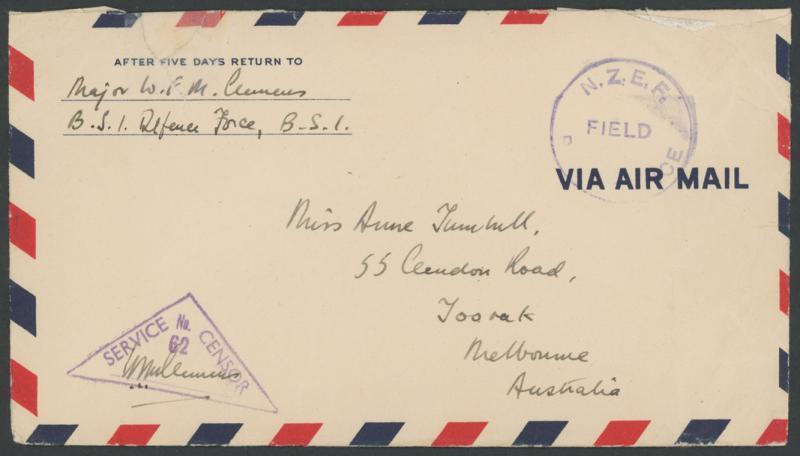 AFTER FIVE DAYS RETURN TO
Major W. F. M. Clemens
B.S.I. Defence Force, B.S.I.
N.Z.E.F.
FIELD
CE
VIA AIR MAIL
Miss Anne Turnbull,
55 Clendon Road,
Toorak
Melbourne
Australia
SERVICE No. 62 CENSOR
WFMClemens